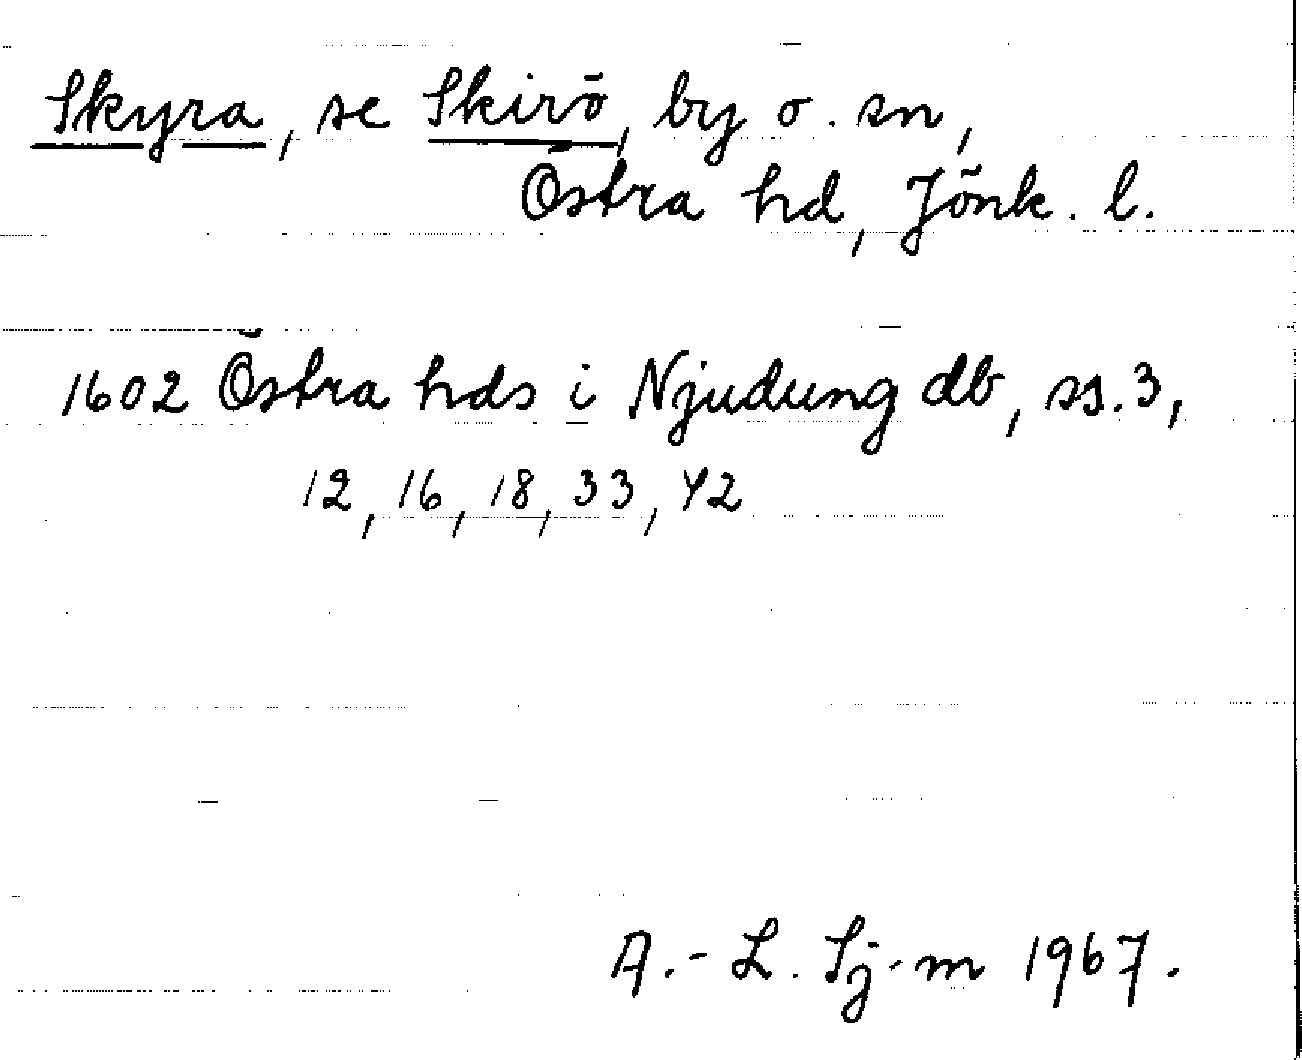 Skyra, se Skirö, by o. sn,
Östra hd, Jönk. l.
1602 Östra hds i Njudung db, ss. 3,
12, 16, 18, 33, 42
A.-L. Sj-m 1967.